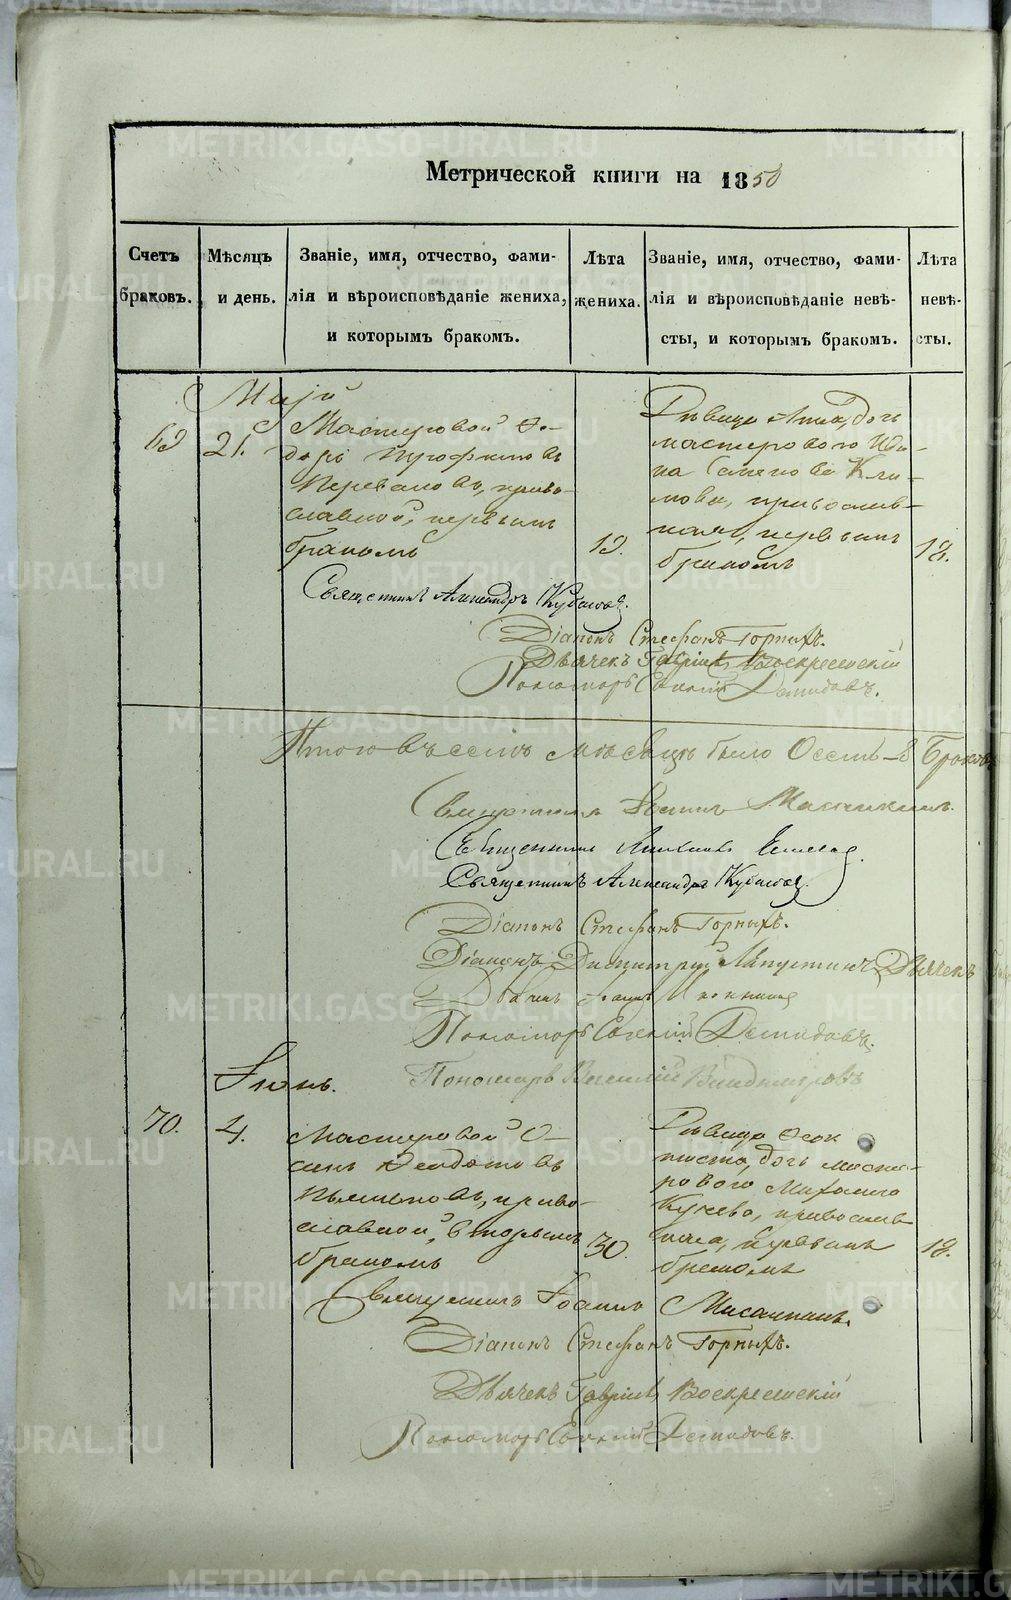 Метрической книги на 1850
Счетъ браковъ.
Мѣсяцъ и день.
Званіе, имя, отчество, фами-
лія и вѣроисповѣданіе жениха,
и которымъ бракомъ.
Лѣта жениха.
Званіе, имя, отчество, фами-
лія и вѣроисповѣданіе невѣ-
сты, и которымъ бракомъ.
Лѣта невѣ-
сты.
Маій
69
21.
Мастеровой Ѳе-
доръ Трофимовъ
Перваловъ, право-
славной, первымъ
бракомъ
19.
Дѣвица Анна, дочь
мастероваго Ива-
на Климова, православ-
ная, первымъ
бракомъ
18.
Священникъ Александръ
Діаконъ Стефанъ Горныхъ.
Дьячекъ Гавріилъ Воскресенскій
Пономарь Евгеній Демидовъ.
Итого въ семъ мѣсяцѣ было Осемь - 8 Браковъ
Священникъ Іоаннъ
Священникъ
Священникъ Александръ
Діаконъ Стефанъ Горныхъ.
Діаконъ Димитрій Лапустинъ Дьячекъ
Дьячекъ
Пономарь Евгеній Демидовъ.
Пономарь Василій
Іюнь.
70.
4.
Мастеровой О-
сипъ Ѳедотовъ
право-
славной, вторымъ
бракомъ
30.
Дѣвица Ѳеок-
тиста, дочь масте-
роваго Михаила
православ-
ная, первымъ
бракомъ
18.
Священникъ Іоаннъ
Діаконъ Стефанъ Горныхъ.
Дьячекъ Гавріилъ Воскресенскій
Пономарь Евгеній Демидовъ.
METRIKI.GASO-URAL.RU